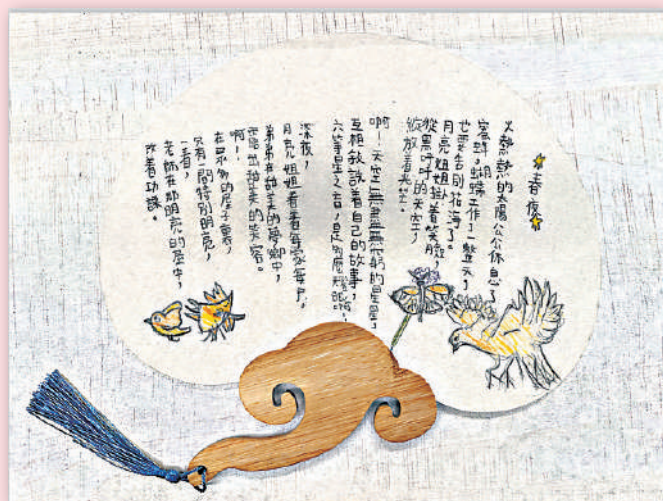 春夜
火熱熱的太陽公公休息了，
蜜蜂、蝴蝶工作了一整天，
也要告別花海了。
月亮姐姐掛着笑臉，
從黑呼呼的天空，
綻放着光芒。
啊！天空上無盡無窮的星星，
互相敘說着自己的故事，
六等星之名，是多麼耀眼啊！
深夜，
月亮姐姐看着每家每戶，
弟弟在甜美的夢鄉中，
露出甜美的笑容。
啊！
在眾多的屋子裏，
只有一間特別明亮，
一看，
老師在那明亮的屋中，
改着功課。